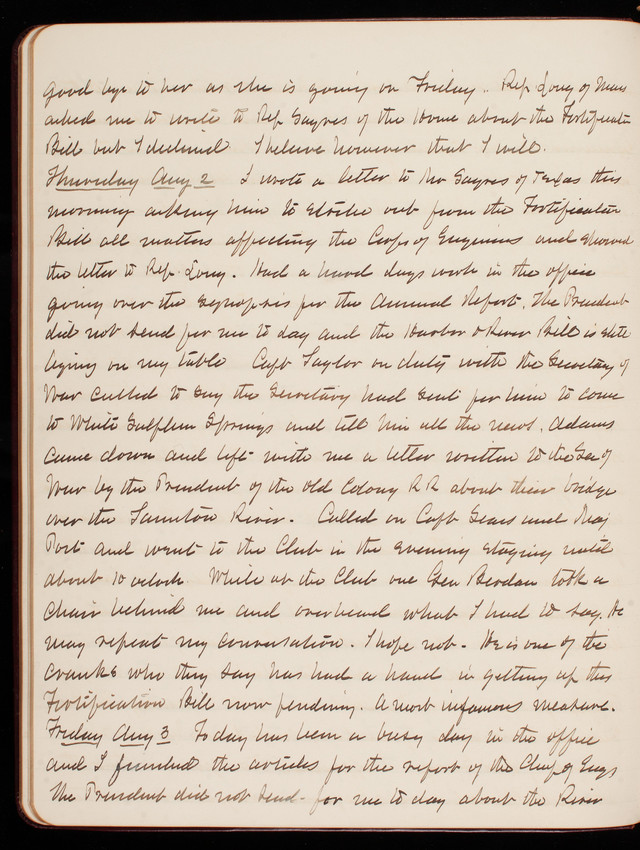 good bye to her as she is going on Friday. Rep Long of Mass
asked me to write to Rep Sayres of the House about the Fortificatn
Bill but I declined I believe however that I will.
Thursday Aug 2 I wrote a letter to Mr Sayres of Texas this
morning asking him to strike out from the Fortification
Bill all matters affecting the Corps of Engineers and showed
the letter to Rep Long. Had a hard days work in the office
going over the synopsis for the Annual Report. The President
did not send for me to day and the Harbor & River Bill is still
lying on my table Capt Taylor on duty with the Secretary of
War called to say the Secretary had sent for him to come
to White Sulphur Springs and tell him all the news. Adams
came down and left with me a letter written to the Sec of
War by the President of the Old Colony R R about their bridge
over the Taunton River. Called on Capt Sears and Maj
Post and went to the Club in the evening staying until
about 10 oclock While at the Club one Gen Berdan took a
chair behind me and overheard what I had to say. He
may repeat my conversation. I hope not. He is one of the
cranks who they say has had a hand in getting up this
Fortification Bill now pending. A most infamous measure.
Friday Aug 3 To day has been a busy day in the office
and I finished the articles for the report of the Chief of Engs
The President did not send for me to day about the River